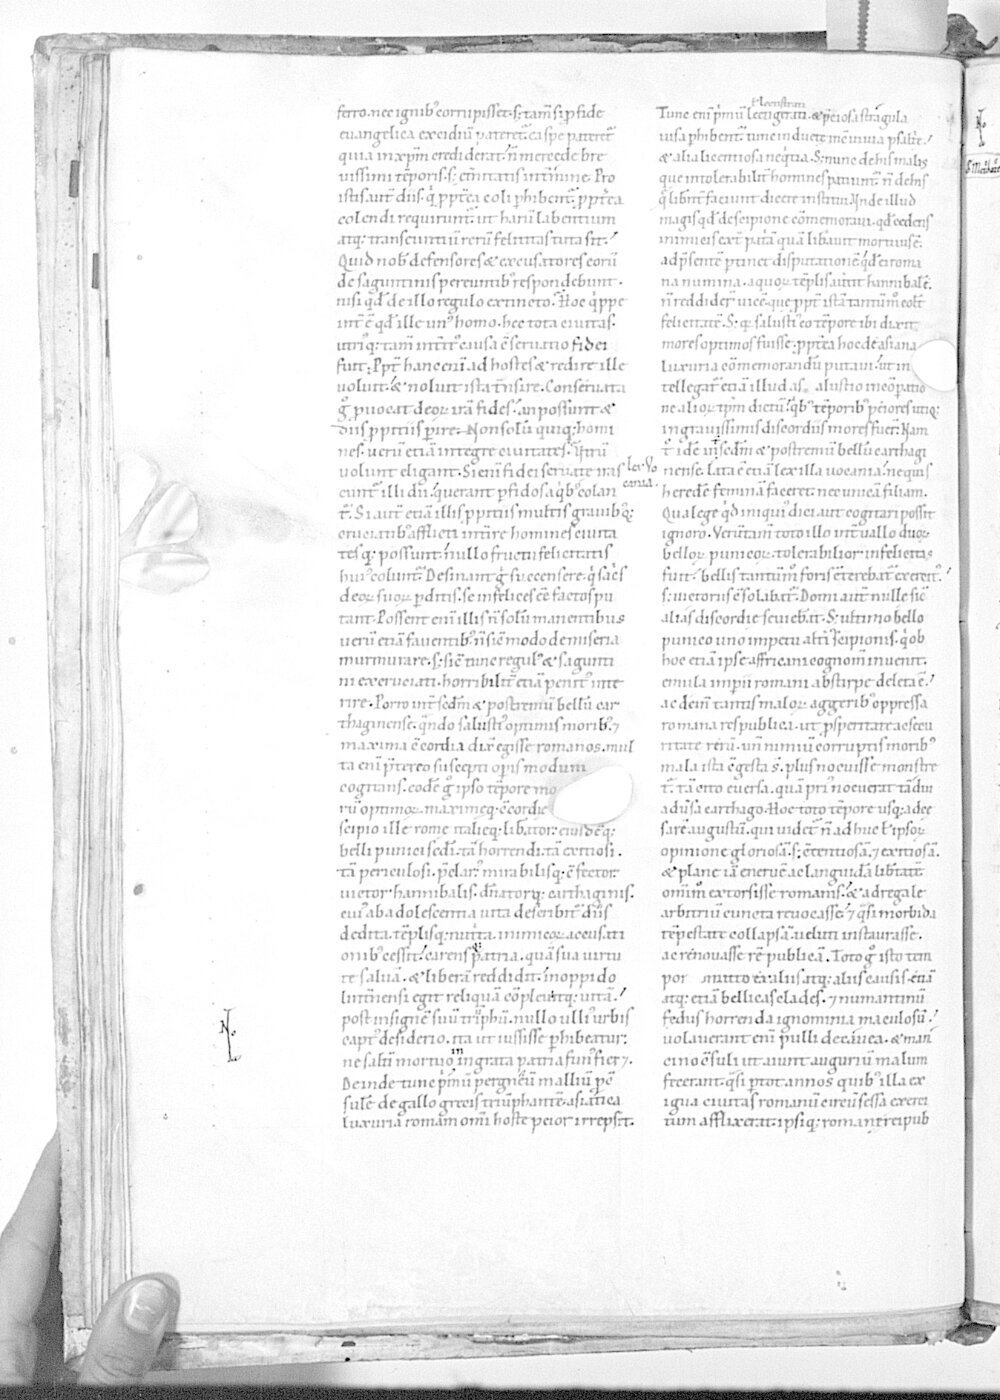 ferro. nec ignib; corrupisset. s; tam̄ si p̱ fide
euangelica excidiū pateret̄. ea spe pateret̄
qua in xp̄m crediderat. n̄ mercede bre
uissimi tēporis. s; et̄nitatis int̄mine. Pro
istis aut̄ diis. q̇ ppt̄ea coli phibent̄. ppt̄ea
colendi requirunt̄. ut harū labentium
atq; transeuntiū rerū felicitas tuta sit.
Quid nob̄ defensores & excusatores eorū
de saguntinis pereuntib; respondebunt.
nisi qd̄ de illo regulo extincto. Hoc q̇ppe
int̄ ē qd̄ ille un; homo. hec tota ciuitas.
utriq; tam̄ int̄it; causa c̄seruatio fidei
fuit. Ppt̄ hanc eni ad hostes & redire ille
uoluit. & noluit ista t̄nsire. Conseruata
g̊ puocat deoꝝ irā fides. an possunt &
diis ppitiis pire. Non solū quiq; homi
nes. uerū etiā integre ciuitates. Utrū
uolunt eligant. Si eni fidei seruate iras
cunt̄ illi dii. querant pfidos a qb; colan
t̄. Si aut̄ etiā illis ppitiis multis grauib;q;
cruciatib; afflicti int̄ire homines ciuita
tesq; possunt. nullo fructu felicitatis
hui; colunt̄. Desinant g̊ succensere. q̇ sac̄s
deoꝝ suoꝝ pditis. se infelices ēē factos pu
tant. Possent eni illis n̄ solū manentibus
uerū etiā fauentib; n̄ sic̄ modo de miseria
murmurare. s; sic̄ tunc regul; & sagunti
ni excruciati. horribilit̄ etiā penit; inte
rire. Porro int̄ sedm̄ & postremū bellū car
thaginense. qndo salusti; optimis morib; ⁊
maxima c̄cordia dix̄ egisse romanos. mul
ta eni pt̄ereo suscepti opis modum
cogitans. eodē g̊ ipso tēpore mo
rū optimoꝝ. maximeq; c̄cordie
scipio ille rome italieq; libator. eiusdēq;
belli punici sedi. tā horrendi. tā exitiosi.
tā periculosi. pclar; mirabilisq; c̄fector.
uictor hannibalis. dn̄atorq; carthaginis.
cui; ab adolescentia uita describit̄ diis
dedita. tēplisq; nutrita. inimicoꝝ accusati
onib; cessit. carensq; patria. quā sua uirtu
te saluā. & liberā reddidit. in oppido
lint̄nensi egit reliquā cōpleuitq; uitā.
post insignē suū triūphū. nullo illi; urbis
capt; desiderio. ita ut iussisse phibeatur.
ne saltē mortuo in ingrata patria fun; fieret.
Deinde tunc pimū per gneū malliū pc̄o
sulē de gallogrecis triūphantē. asiatica
luxuria romam om̄i hoste peior irrepsit.
ł lecti strati
Tunc eni pimū lecti gerata. & pciosa stragula
uisa phibent̄. tunc inducte in c̄uiuia psalt̄e.
& alia licentiosa neq̇tia. S; nunc de his malis
que intolerabilit̄ homines patiunt̄. n̄ de his
q̇ libent̄ faciunt dicere institui. Unde illud
magis qd̄ de scipione cōmemoraui. qd̄ cedens
inimicis ext̄ pat̄iā quā libauit mortuus ē.
ad psentē ptinet disputationē. qd̄ ei roma
na numina. a quoꝝ tēplis auertit hannibalē.
n̄ reddider̄ uicē. que ppt̄ istā tantūm; colt̄
felicitatē. S; q; salusti; eo tēpore ibi dixit
mores optimos fuisse. ppt̄ea hoc de asiana
luxuria cōmemorandū putaui. ut in
tellegat̄ etiā illud a salustio in cōpatio
ne alioꝝ tp̄m dictū. qb; tēporib; peiores utiq;
in grauissimis discordiis mores fuer̄. Nam
t̄ idē int̄ sedm̄ & postremū bellū carthagi
nense. lata ē etiā lex illa uocania. ne quis
heredē feminā faceret. nec unicā filiam.
Qua lege qd̄ iniqui; dici aut cogitari possit
ignoro. Verūtam̄ toto illo int̄uallo duoꝝ
belloꝝ punicoꝝ. tolerabilior infelicitas
fuit. bellis tantūm; foris c̄terebat̄ exercit;.
s; uictoriis c̄solabat̄. Domi aut̄ nulle sic̄
alias discordie seuiebāt. S; ultimo bello
punico uno impetu alt̄i; scipionis. q̇ ob
hoc etiā ipse affricani cognom̄ inuenit.
emula impii romani ab stirpe deleta ē.
ac dein̄ tantis maloꝝ aggerib; oppressa
romana respublica. ut psperitate ac secu
ritate rerū. un̄ nimiū corruptis morib;
mala ista c̄gesta s̄. plus nocuisse monstre
t̄. tā cito euersa. quā pri; nocuerat tā diu
adūsa carthago. Hoc toto tēpore usq; ad ce
sarē augustū. qui uidet̄ n̄ adhuc ł ipsoꝝ
opinione gloriosā. s; c̄tentiosā. ⁊ exitiosā.
& plane iā eneruē ac languidā libtatē
om̄im; extorsisse romanis. & ad regale
arbitriū cuncta reuocasse. ⁊ q̄si morbida
uetustate collapsā. ueluti instaurasse.
ac renouasse rē publicā. Toto g̊ isto tem
por mitto ex aliis atq; aliis causis. etiā
atq; etiā bellicas clades. ⁊ numantinū
fedus horrenda ignominia maculosū.
uolauerant eni pulli de cauea. & man
cino c̄suli ut aiunt auguriū malum
fecerant. q̄si p tot annos quib; illa ex
igua ciuitas romanū circūsessa exerci
tum afflixerat. ipsiq; romane reipub
lex Vo
cania.